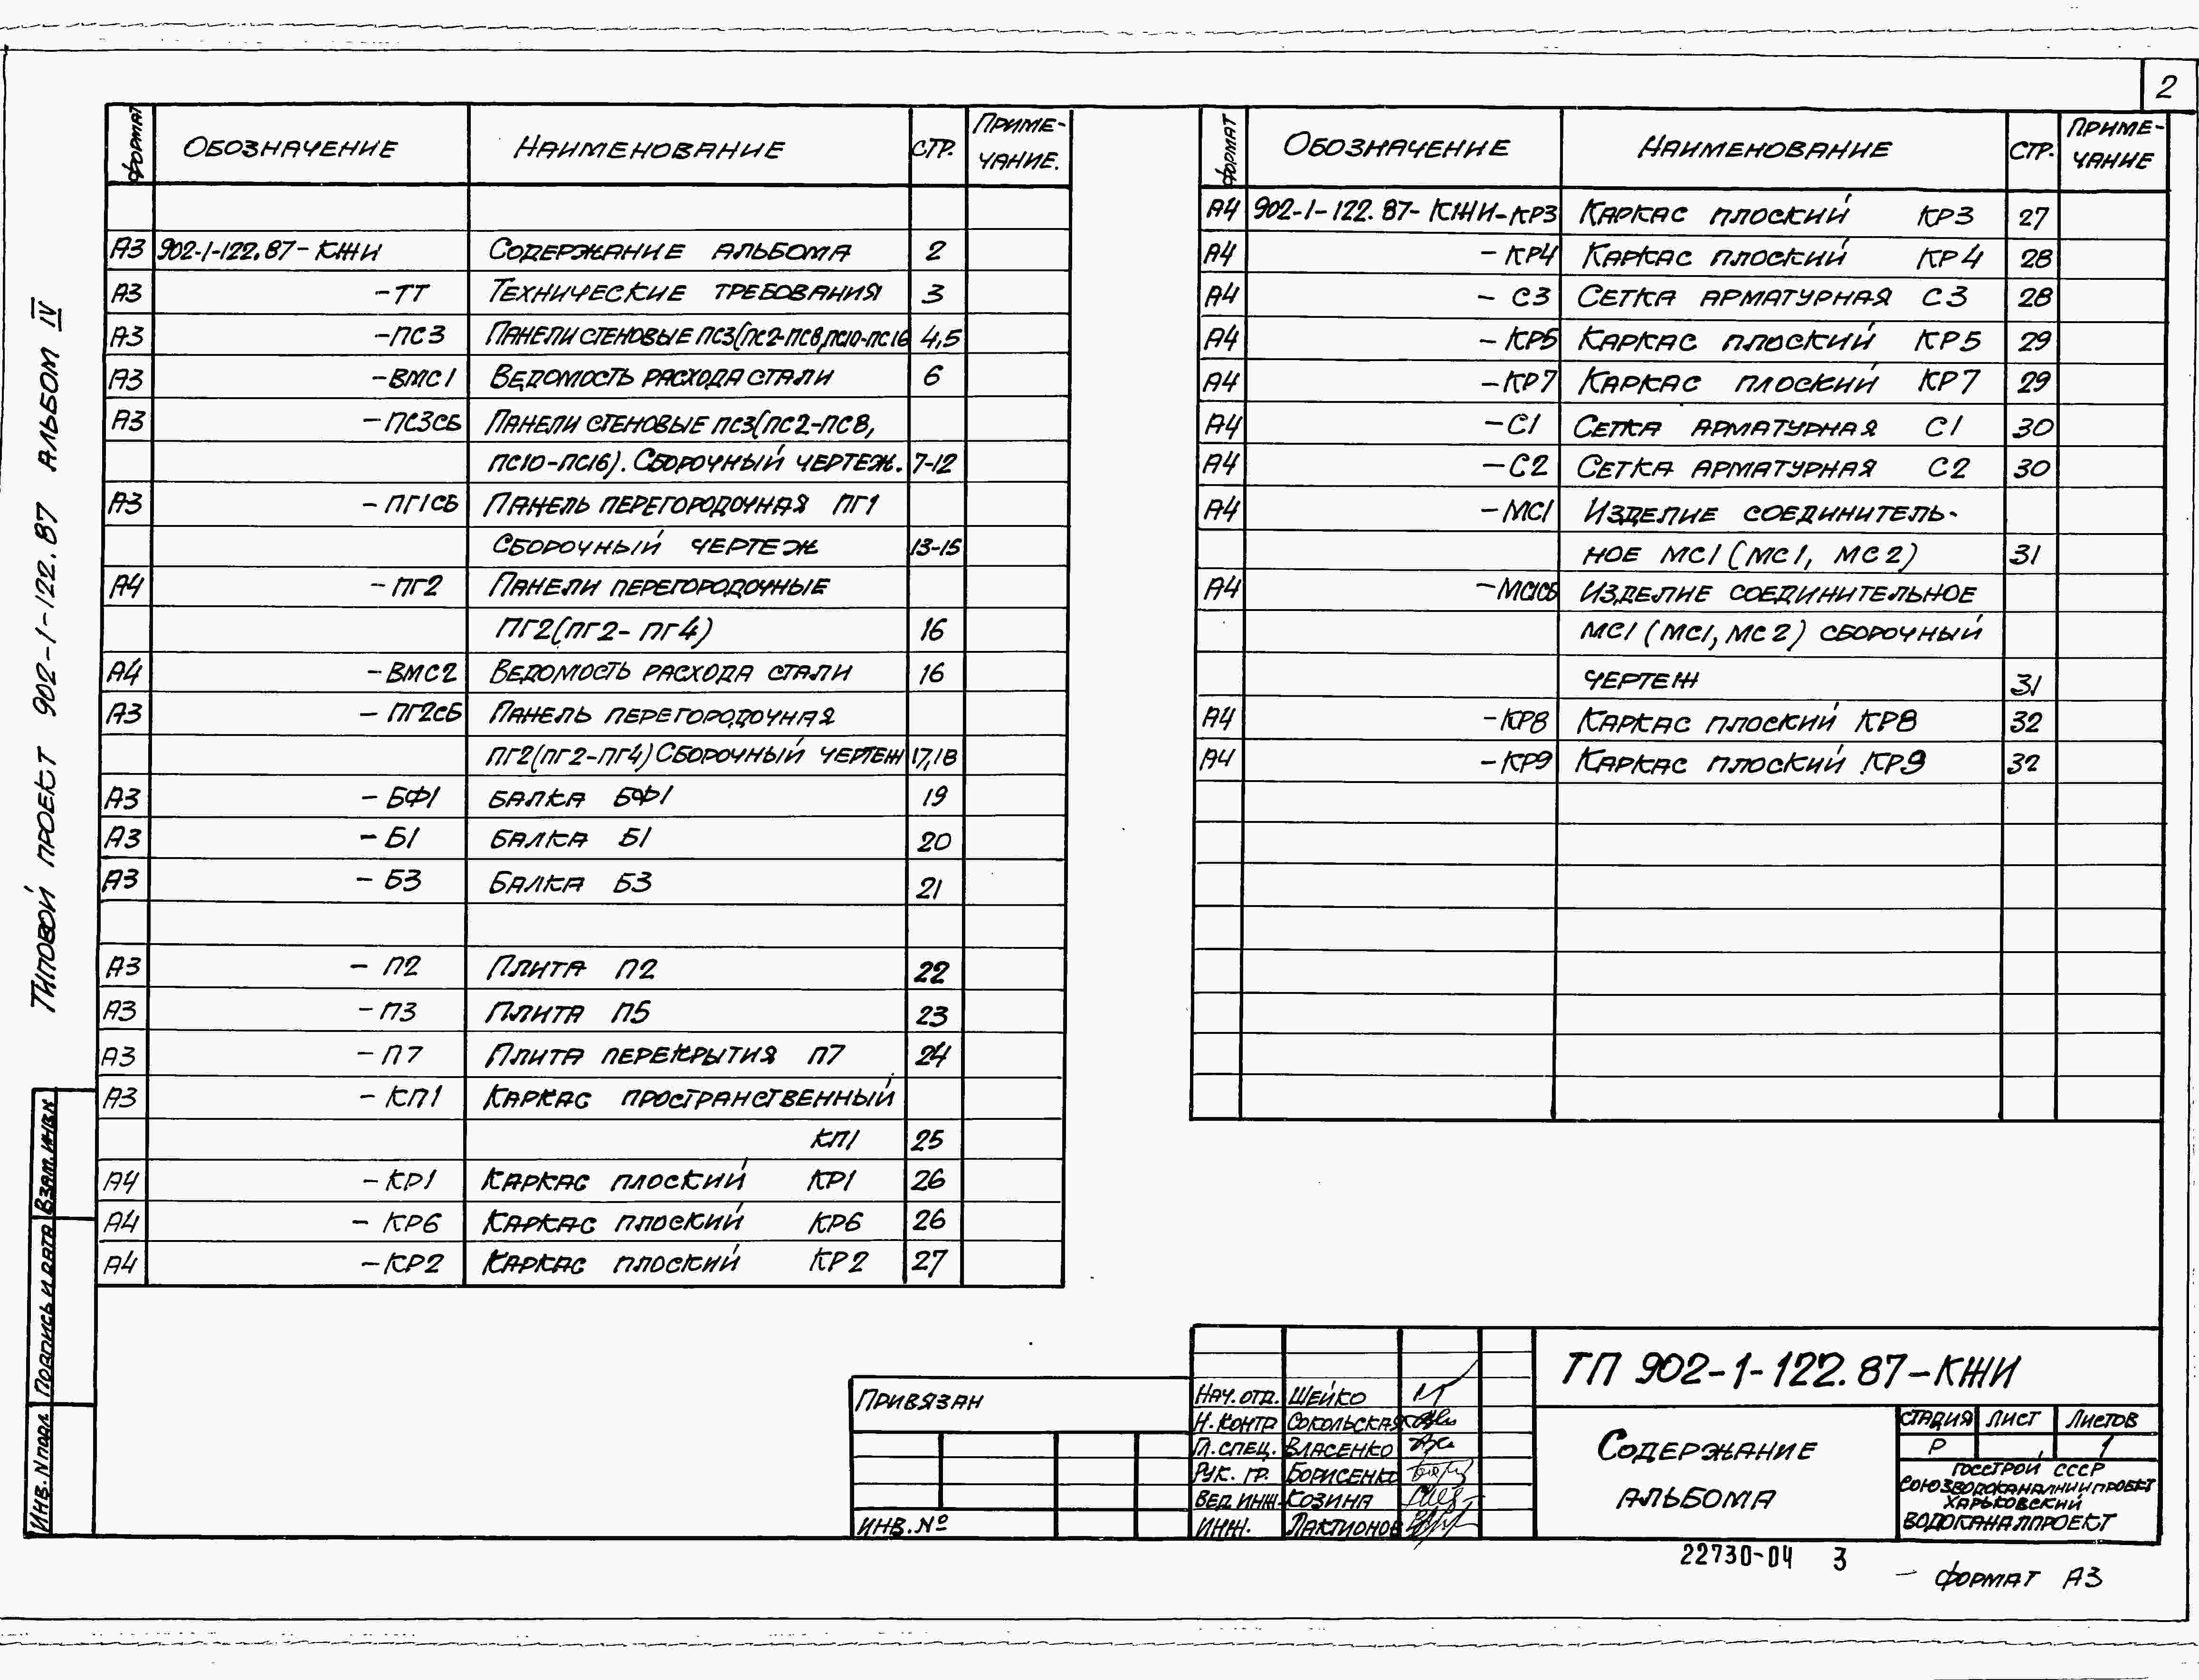 2
Типовой проект 902-1-122.87 Альбом IV
Формат Обозначение Наименование Стр. Примечание.
А3 902-1-122.87-КЖИ Содержание альбома 2
А3 -ТТ Технические требования 3
А3 -ПС3 Панели стеновые ПС3(ПС2-ПС8,ПС10-ПС16 4,5
А3 -ВМС1 Ведомость расхода стали 6
А3 -ПС3СБ Панели стеновые ПС3(ПС2-ПС8,
ПС10-ПС16). Сборочный чертеж. 7-12
А3 -ПГ1СБ Панель перегородочная ПГ1
Сборочный чертеж 13-15
А4 -ПГ2 Панели перегородочные
ПГ2(ПГ2-ПГ4) 16
А4 -ВМС2 Ведомость расхода стали 16
А3 -ПГ2СБ Панель перегородочная
ПГ2(ПГ2-ПГ4) Сборочный чертеж 17,18
А3 -БФ1 Балка БФ1 19
А3 -Б1 Балка Б1 20
А3 -Б3 Балка Б3 21
А3 -П2 Плита П2 22
А3 -П3 Плита П5 23
А3 -П7 Плита перекрытия П7 24
А3 -КП1 Каркас пространственный
КП1 25
А4 -КР1 Каркас плоский КР1 26
А4 -КР6 Каркас плоский КР6 26
А4 -КР2 Каркас плоский КР2 27
Формат Обозначение Наименование Стр. Примечание
А4 902-1-122.87-КЖИ-КР3 Каркас плоский КР3 27
А4 -КР4 Каркас плоский КР4 28
А4 -С3 Сетка арматурная С3 28
А4 -КР5 Каркас плоский КР5 29
А4 -КР7 Каркас плоский КР7 29
А4 -С1 Сетка арматурная С1 30
А4 -С2 Сетка арматурная С2 30
А4 -МС1 Изделие соединитель-
ное МС1 (МС1, МС2) 31
А4 -МС1СБ Изделие соединительное
МС1 (МС1, МС2) сборочный
чертеж 31
А4 -КР8 Каркас плоский КР8 32
А4 -КР9 Каркас плоский КР9 32
Взам.инв.N
Подпись и дата
Инв.N подл
Привязан
Инв.№
Нач.отд. Шейко
Н.контр Сокольская
Гл.спец. Власенко
Рук. гр. Борисенко
Вед инж. Козина
Инж. Лактионов
ТП 902-1-122.87-КЖИ
Содержание
альбома
Стадия Лист Листов
Р 1
Госстрой СССР
Союзводоканалниипроект
Харьковский
Водоканалпроект
22730-04 3
Формат А3